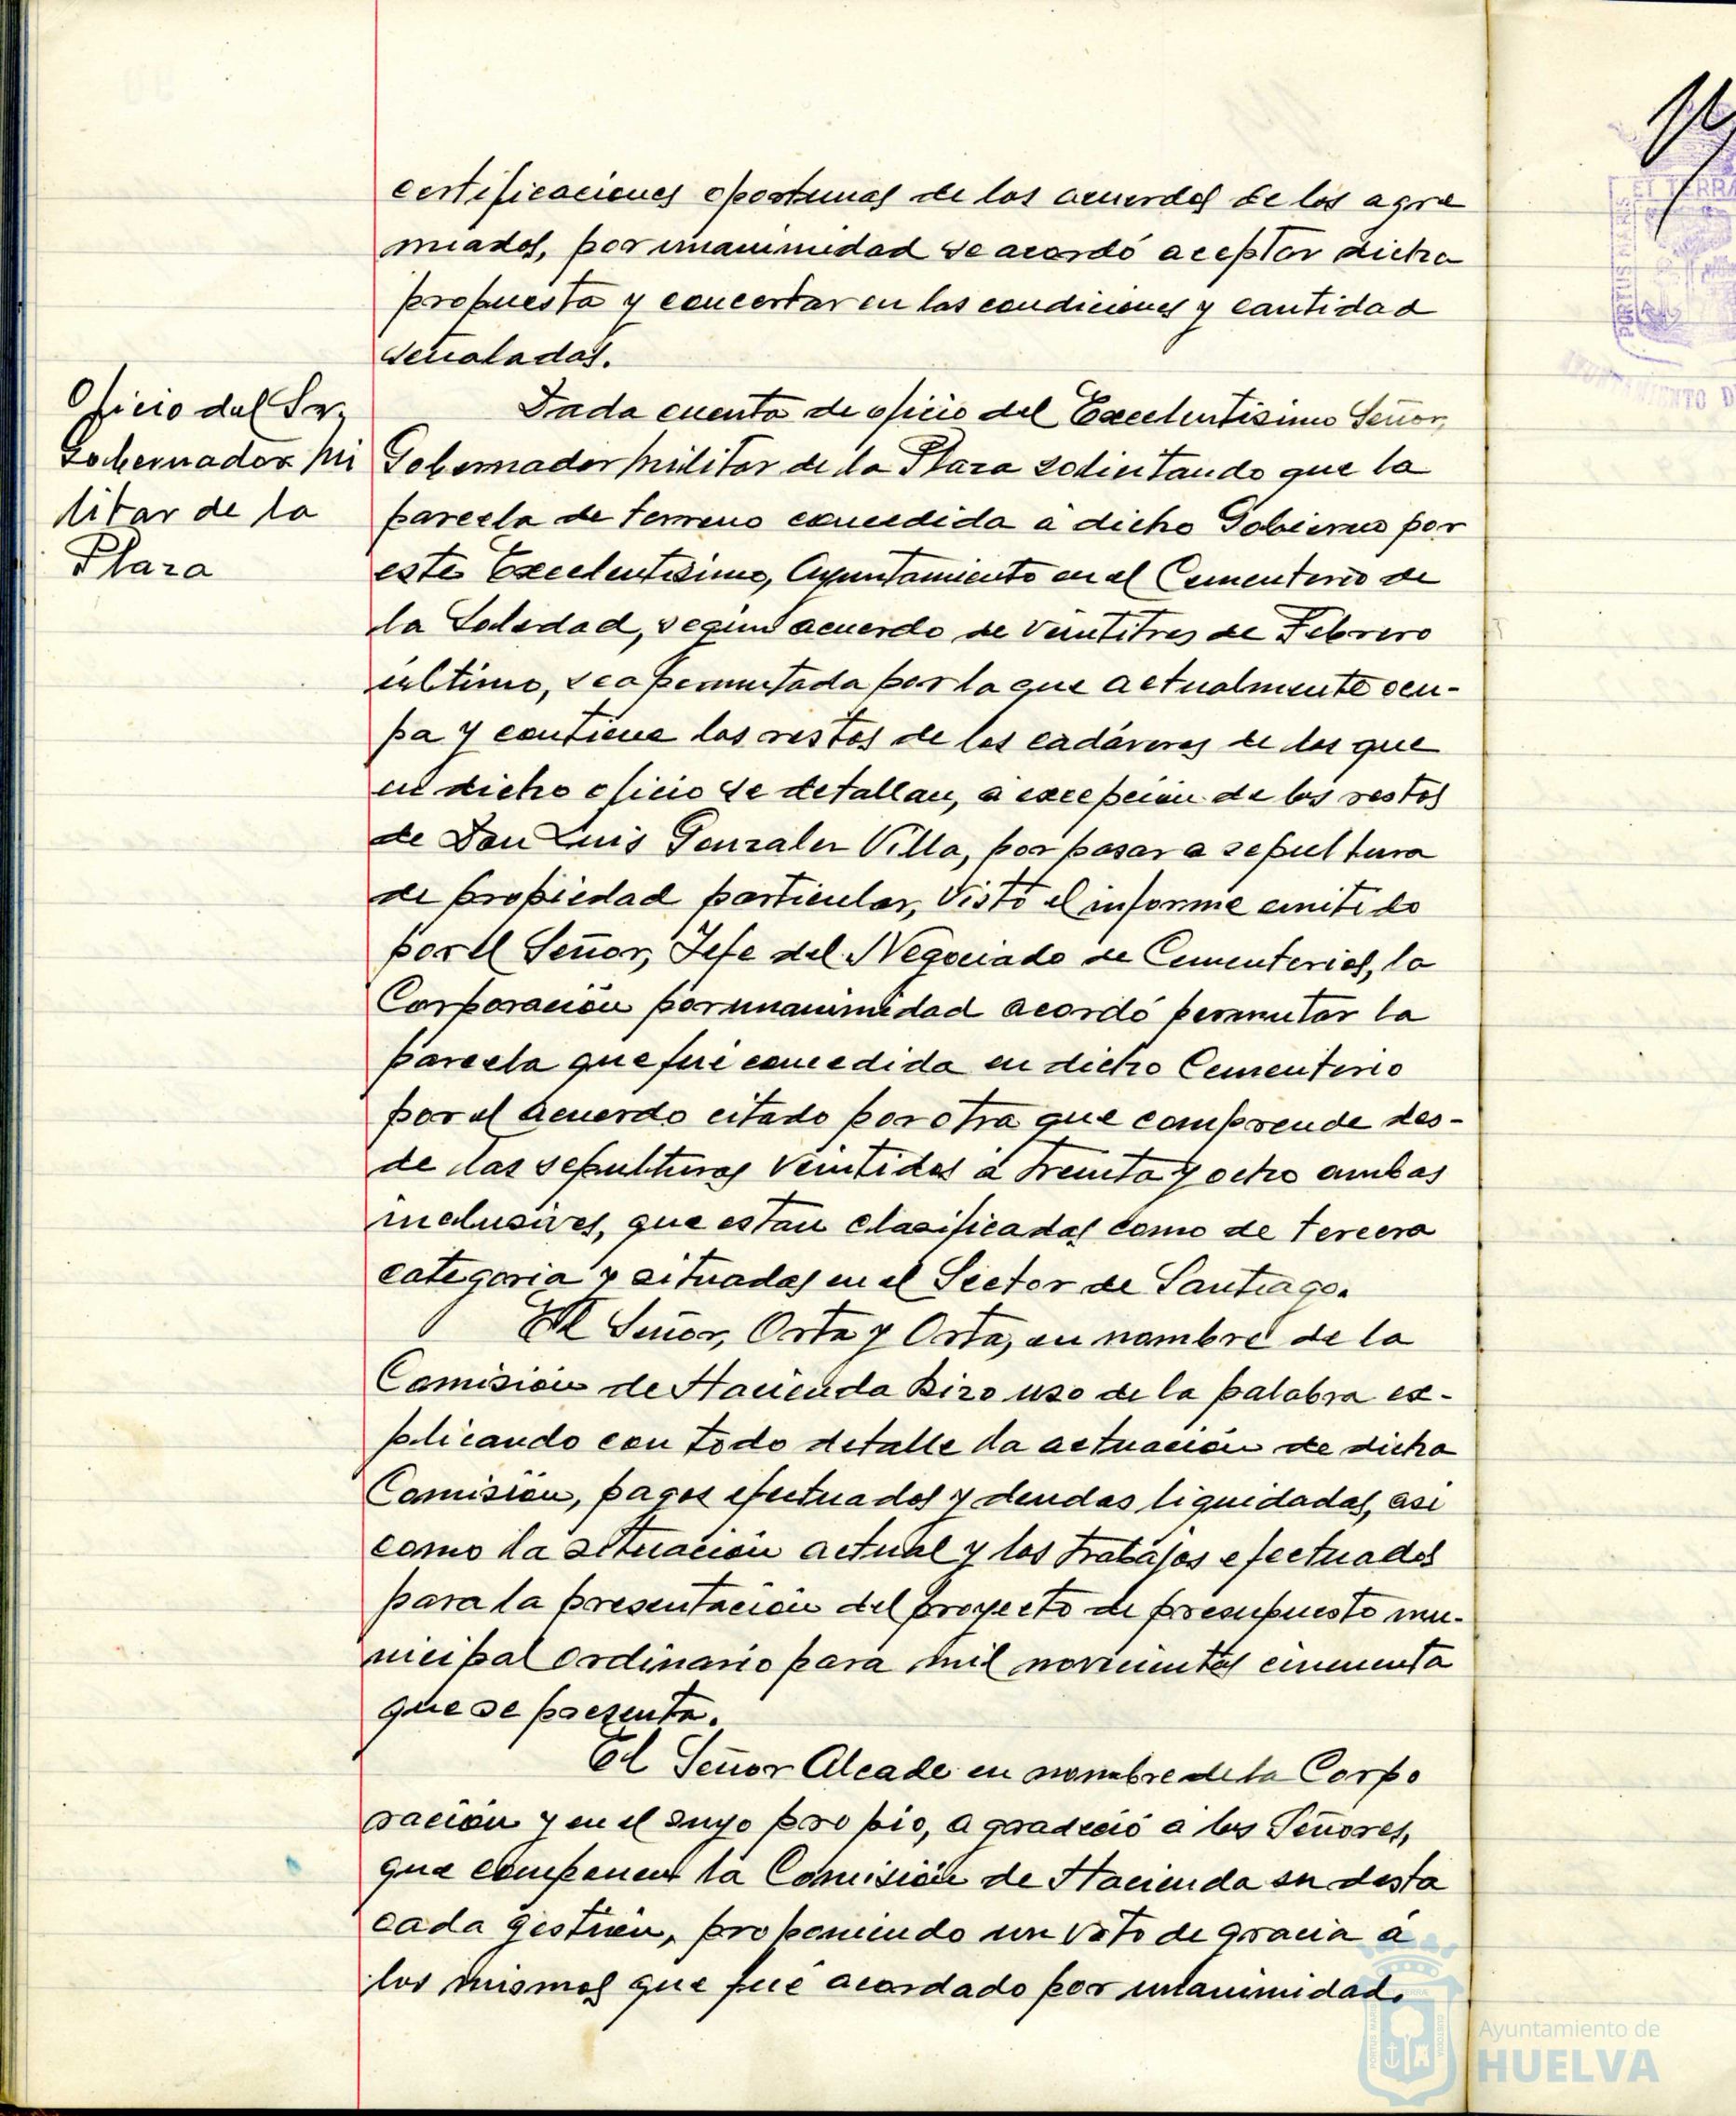 certificaciones oportunas de los acuerdos de los agre
miados, por unanimidad se acordó aceptar dicha
propuesta y concertar en las condiciones y cantidad
señaladas.
Oficio del Sr.
Gobernador Mi
litar de la
Plaza
Dada cuenta de oficio del Excelentisimo Señor,
Gobernador Militar de la Plaza solicitando que la
parcela de terreno concedida a dicho Gobierno por
este Excelentisimo, Ayuntamiento en el Cementerio de
la Soledad, según acuerdo de veintitres de Febrero
último, sea permutada por la que actualmente ocu-
pa y contiene los restos de los cadáveres de los que
en dicho oficio se detallan, a excepción de los restos
de Don Luis Gonzalez Villa, por pasar a sepultura
de propiedad particular, Visto el informe emitido
por el Señor, Jefe del Negociado de Cementerios, la
Corporación por unanimidad acordó permutar la
parcela que fué concedida en dicho Cementerio
por el acuerdo citado por otra que comprende des-
de las sepulturas veintidos a treinta y ocho ambas
inclusives, que estan clasificadas como de tercera
categoria y situadas en el Sector de Santiago.
El Señor, Orta y Orta, en nombre de la
Comisión de Hacienda hizo uso de la palabra ex-
plicando con todo detalle la actuación de dicha
Comisión, pagos efectuados y deudas liquidadas, asi
como la situación actual y los trabajos efectuados
para la presentación del proyecto de presupuesto mu-
nicipal ordinario para mil novecientos cincuenta
que se presenta.
El Señor Alcade en nombre de la Corpo
ración y en el suyo propio, agradeció a los Señores,
que componen la Comisión de Hacienda su desta
cada gestión, proponiendo un voto de gracia a
los mismos que fué acordado por unanimidad.
ET TERRA
PORTUS MARIS
Ayuntamiento de
HUELVA